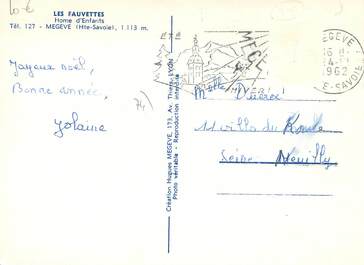 LES FAUVETTES
Home d'Enfants
Tél. 127 - MEGEVE (Hte-Savoie), 1 113 m.
Joyeux noël,
Bonne année,
Yolaine
Création Hugues MEGEVE, 173, Av. Thiers - LYON
Photo véritable - Reproduction interdite
ETE
HIVER
MEGEVE
16
1962
E-SAVOIE
Melle
Villa du
Seine Neuilly